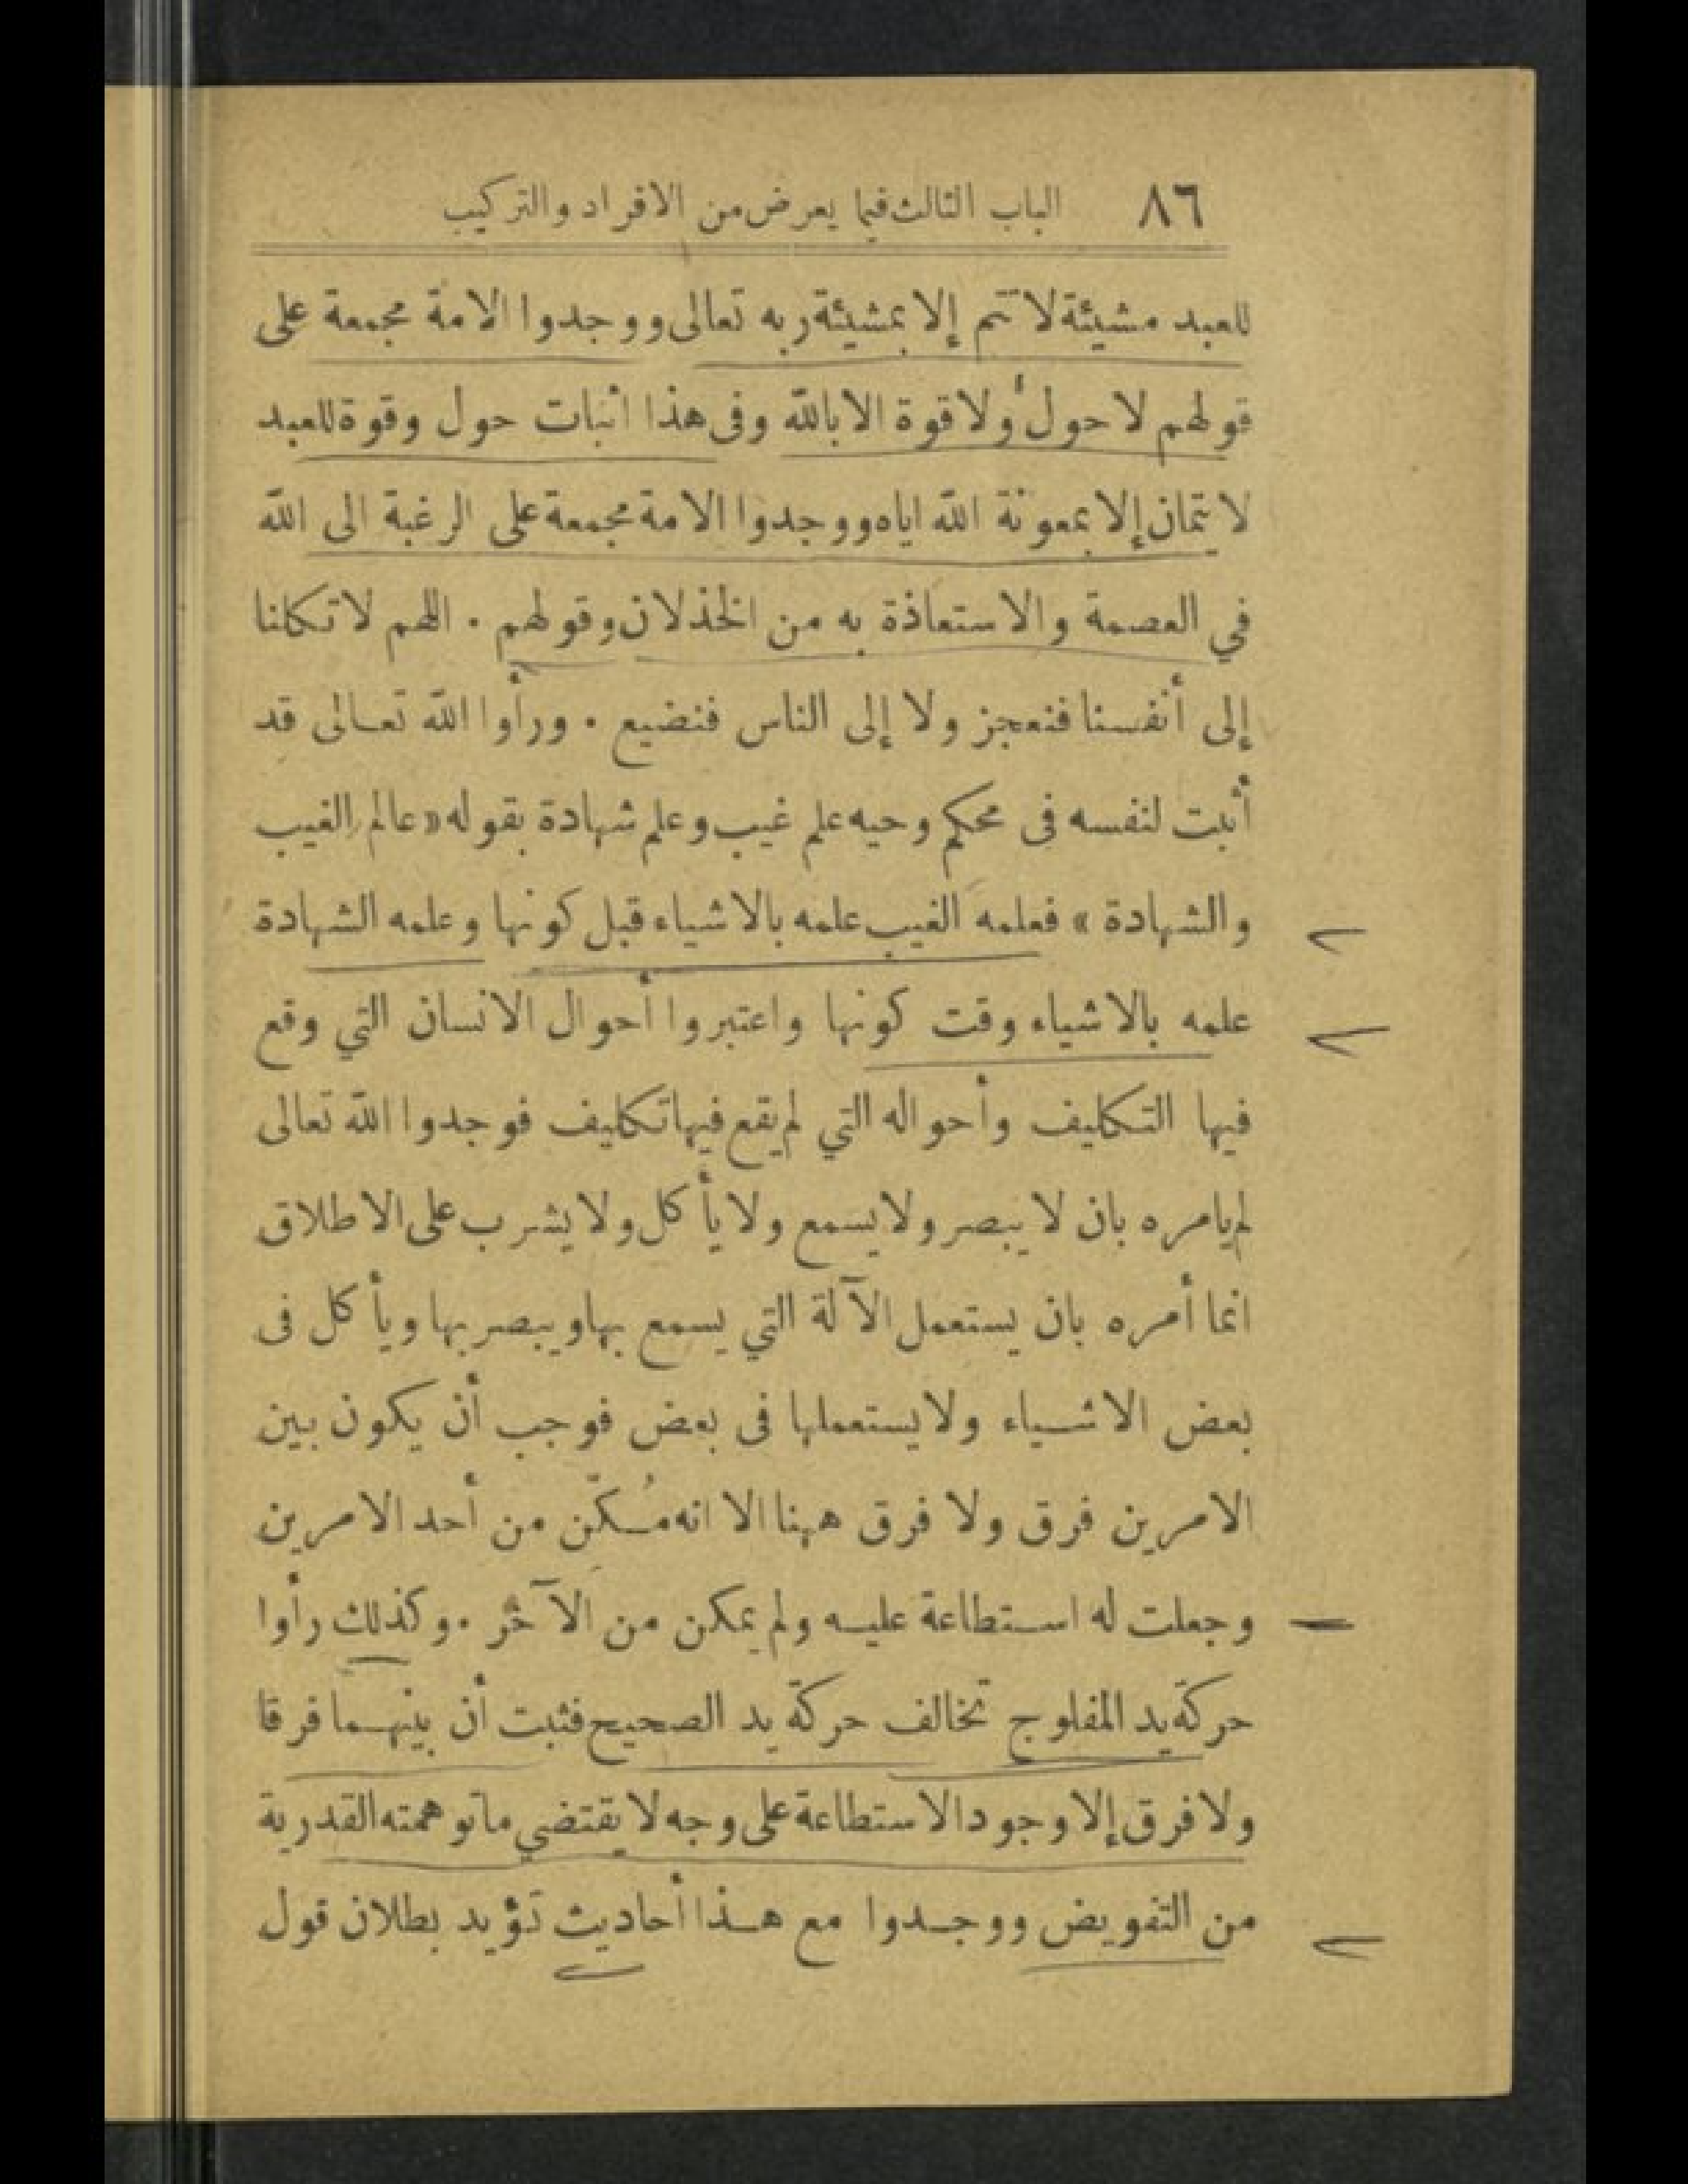 ٨٦ الباب الثالث فيما يعرض من الافراد والتركيب
للعبد مشيئة لا تتم إلا بمشيئة ربه تعالى ووجدوا الامة مجمعة على
قولهم لا حول ولا قوة الا بالله وفى هذا اثبات حول وقوة للعبد
لا يتمان إلا بمعونة الله اياه ووجدوا الامة مجمعة على الرغبة الى الله
في العصمة والاستعاذة به من الخذلان وقولهم . اللهم لا تكلنا
إلى أنفسنا فنعجز ولا إلى الناس فنضيع . ورأوا الله تعالى قد
أثبت لنفسه فى محكم وحيه علم غيب وعلم شهادة بقوله « عالم الغيب
والشهادة » فعلمه الغيب علمه بالاشياء قبل كونها وعلمه الشهادة
علمه بالاشياء وقت كونها واعتبروا أحوال الانسان التي وقع
فيها التكليف وأحواله التي لم يقع فيها تكليف فوجدوا الله تعالى
لم يامره بان لا يبصر ولا يسمع ولا يأكل ولا يشرب على الاطلاق
انما أمره بان يستعمل الآلة التي يسمع بها ويبصر بها ويأكل فى
بعض الاشياء ولا يستعملها فى بعض فوجب أن يكون بين
الامرين فرق ولا فرق ههنا الا انه مُكّن من أحد الامرين
وجعلت له استطاعة عليه ولم يمكن من الآخر . وكذلك رأوا
حركة يد المفلوج تخالف حركة يد الصحيح فثبت أن بينهما فرقا
ولا فرق إلا وجود الاستطاعة على وجه لا يقتضي ما توهمته القدرية
من التفويض ووجدوا مع هذا أحاديث تؤيد بطلان قول